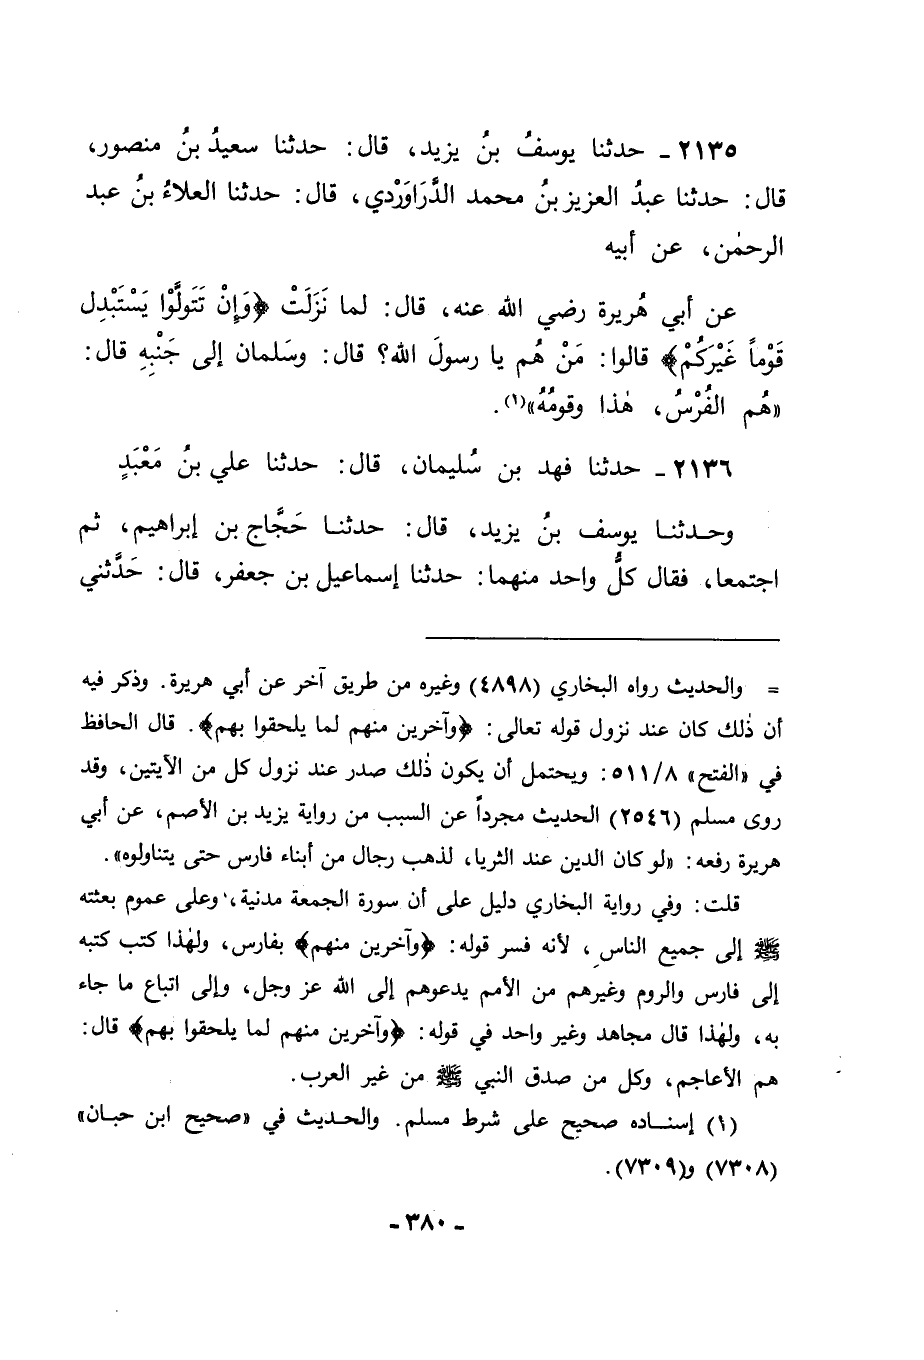 ٢١٣٥ ـ حدثنا يوسفُ بنُ يزيد، قال: حدثنا سعيدُ بنُ منصور،
قال: حدثنا عبدُ العزيز بنُ محمد الدَّرَاوَرْدي، قال: حدثنا العلاءُ بنُ عبد
الرحمٰن، عن أبيه
عن أبي هُريرة رضي الله عنه، قال: لما نَزَلَتْ ﴿وَإِنْ تَتَولَّوْا يَسْتَبْدِل
قَوْماً غَيْرَكُمْ﴾ قالوا: مَنْ هُم يا رسولَ الله؟ قال: وسَلمان إلى جَنْبِهِ قال:
«هُم الفُرْسُ، هٰذا وقومُهُ»(١).
٢١٣٦ ـ حدثنا فهد بن سُليمان، قال: حدثنا علي بنُ مَعْبَدٍ
وحدثنا يوسف بنُ يزيد، قال: حدثنا حَجَّاج بن إبراهيم، ثم
اجتمعا، فقال كلُّ واحد منهما: حدثنا إسماعيل بن جعفر، قال: حَدَّثني
= والحديث رواه البخاري (٤٨٩٨) وغيره من طريق آخر عن أبي هريرة. وذكر فيه
أن ذٰلك كان عند نزول قوله تعالى: ﴿وآخرين منهم لما يلحقوا بهم﴾. قال الحافظ
في «الفتح» ٥١١/٨: ويحتمل أن يكون ذٰلك صدر عند نزول كل من الآيتين، وقد
روى مسلم (٢٥٤٦) الحديث مجرداً عن السبب من رواية يزيد بن الأصم، عن أبي
هريرة رفعه: «لو كان الدين عند الثريا، لذهب رجال من أبناء فارس حتى يتناولوه».
قلت: وفي رواية البخاري دليل على أن سورة الجمعة مدنية، وعلى عموم بعثته
ﷺ إلى جميع الناس، لأنه فسر قوله: ﴿وآخرين منهم﴾ بفارس، ولهٰذا كتب كتبه
إلى فارس والروم وغيرهم من الأمم يدعوهم إلى الله عز وجل، وإلى اتباع ما جاء
به، ولهٰذا قال مجاهد وغير واحد في قوله: ﴿وآخرين منهم لما يلحقوا بهم﴾ قال:
هم الأعاجم، وكل من صدق النبي ﷺ من غير العرب.
(١) إسناده صحيح على شرط مسلم. والحديث في «صحيح ابن حبان»
(٧٣٠٨) و(٧٣٠٩).
ـ ٣٨٠ ـ